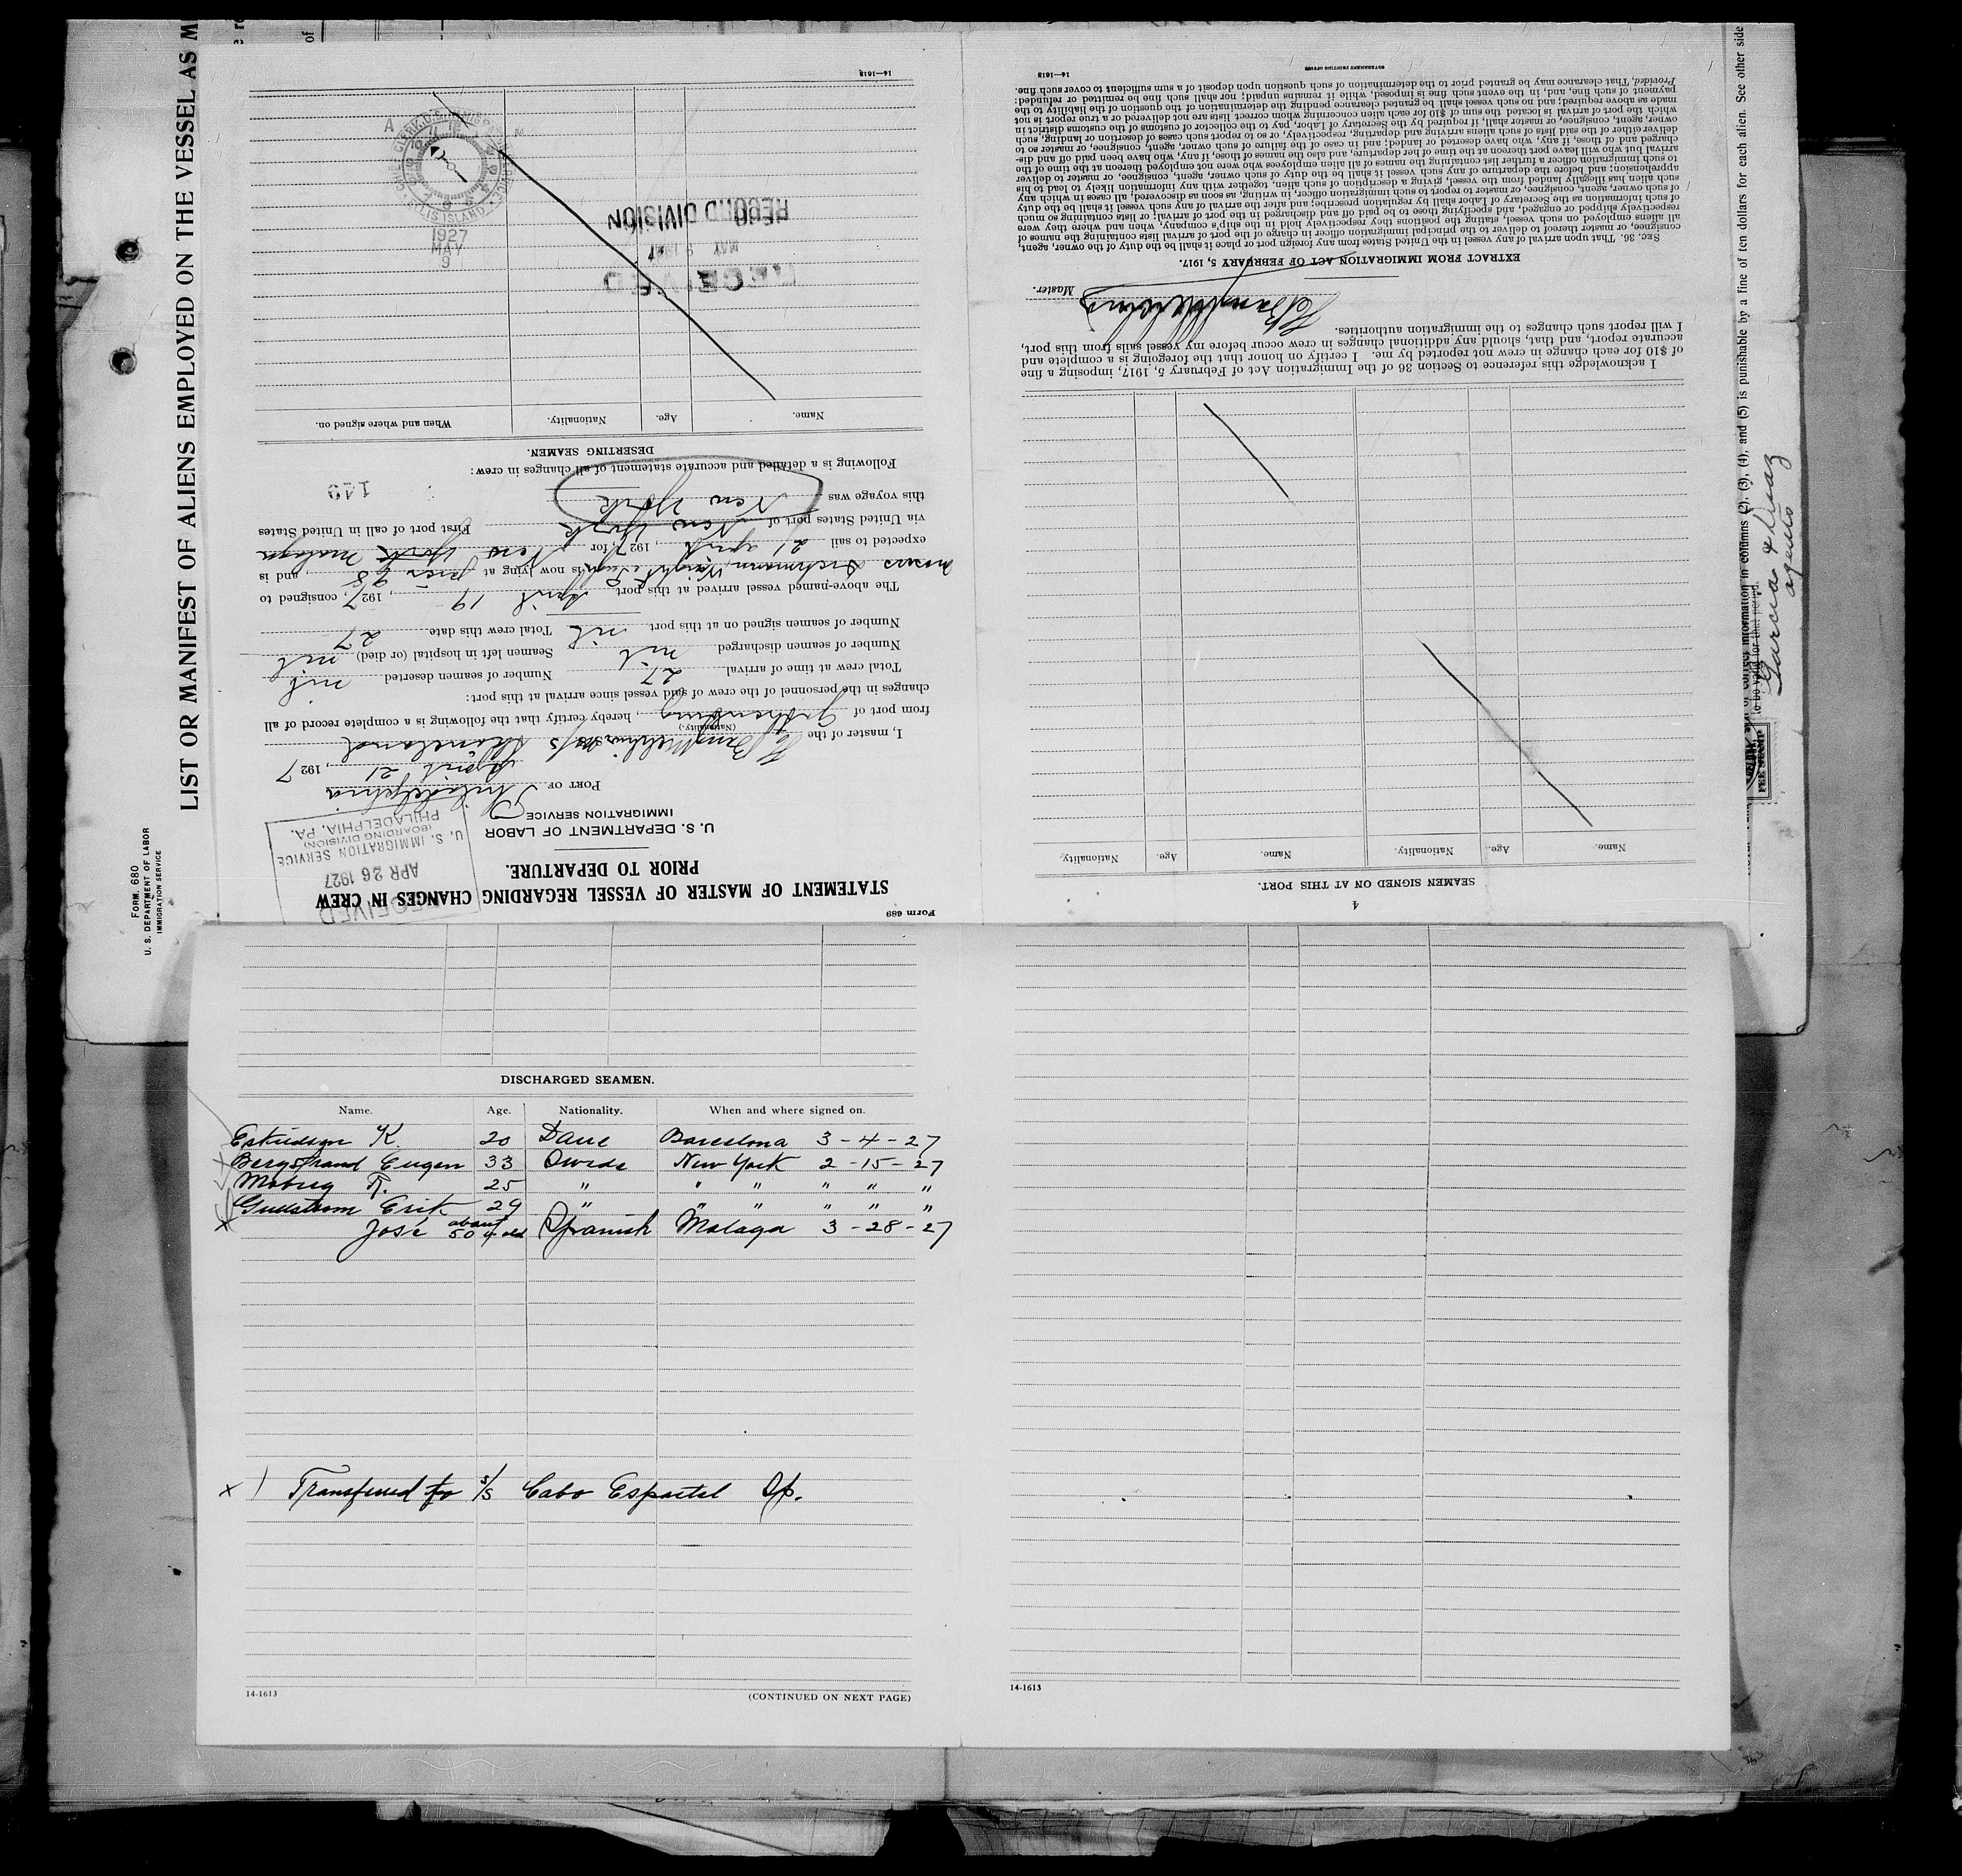 LIST OR MANIFEST OF ALIENS EMPLOYED ON THE VESSEL AS M
FORM 680
U. S. DEPARTMENT OF LABOR
IMMIGRATION SERVICE
Form 689
STATEMENT OF MASTER OF VESSEL REGARDING CHANGES IN CREW
PRIOR TO DEPARTURE.
U. S. DEPARTMENT OF LABOR
IMMIGRATION SERVICE
RECEIVED
APR 26 1927
U. S. IMMIGRATION SERVICE
(BOARDING DIVISION)
PHILADELPHIA, PA.
PORT OF Philadelphia
April 21, 1927
I, master of the s/s
(Nationality.)
from port of Gothenburg, hereby certify that the following is a complete record of all
changes in the personnel of the crew of said vessel since arrival at this port:
Total crew at time of arrival 27 Number of seamen deserted nil
Number of seamen discharged nil Seamen left in hospital (or died) nil
Number of seamen signed on at this port nil Total crew this date 27
The above-named vessel arrived at this port April 19, 1927, consigned to
is now lying at pier 98, and is
expected to sail 21 April, 1927, for New York Malaga
via United States port of New York First port of call in United States
this voyage was New York
149
Following is a detailed and accurate statement of all changes in crew:
DESERTING SEAMEN.
Name. Age. Nationality. When and where signed on.
RECEIVED
MAY 9 1927
RECORD DIVISION
ELLIS ISLAND
1927
MAY
9
14—1613
4
SEAMEN SIGNED ON AT THIS PORT.
Name. Age. Nationality. Name. Age. Nationality.
I acknowledge this reference to Section 36 of the Immigration Act of February 5, 1917, imposing a fine
of $10 for each change in crew not reported by me. I certify on honor that the foregoing is a complete and
accurate report, and that, should any additional changes in crew occur before my vessel sails from this port,
I will report such changes to the immigration authorities.
Master.
EXTRACT FROM IMMIGRATION ACT OF FEBRUARY 5, 1917.
SEC. 36. That upon arrival of any vessel in the United States from any foreign port or place it shall be the duty of the owner, agent,
consignee, or master thereof to deliver to the principal immigration officer in charge of the port of arrival lists containing the names of
all aliens employed on such vessel, stating the positions they respectively hold in the ship's company, when and where they were
respectively shipped or engaged, and specifying those to be paid off and discharged in the port of arrival; or lists containing so much
of such information as the Secretary of Labor shall by regulation prescribe; and after the arrival of any such vessel it shall be the duty
of such owner, agent, consignee, or master to report to such immigration officer, in writing, as soon as discovered, all cases in which any
such alien has illegally landed from the vessel, giving a description of such alien, together with any information likely to lead to his
apprehension; and before the departure of any such vessel it shall be the duty of such owner, agent, consignee, or master to deliver
to such immigration officer a further list containing the names of all alien employees who were not employed thereon at the time of the
arrival but who will leave port thereon at the time of her departure, and also the names of those, if any, who have been paid off and dis-
charged and of those, if any, who have deserted or landed; and in case of the failure of such owner, agent, consignee, or master so to
deliver either of the said lists of such aliens arriving and departing, respectively, or so to report such cases of desertion or landing, such
owner, agent, consignee, or master shall, if required by the Secretary of Labor, pay to the collector of customs of the customs district in
which the port of arrival is located the sum of $10 for each alien concerning whom correct lists are not delivered or a true report is not
made as above required; and no such vessel shall be granted clearance pending the determination of the question of the liability to the
payment of such fine, and, in the event such fine is imposed, while it remains unpaid; nor shall such fine be remitted or refunded:
Provided, That clearance may be granted prior to the determination of such question upon deposit of a sum sufficient to cover such fine.
14—1613 GOVERNMENT PRINTING OFFICE
(2), (3), (4), and (5) is punishable by a fine of ten dollars for each alien. See other side
to be valid for that period.
FEE STAMP
agents
DISCHARGED SEAMEN.
Name. Age. Nationality. When and where signed on.
K. 20 Dane Barcelona 3-4-27
Bergstrand Eugen 33 Swede New York 2-15-27
Moberg R. 25 " " " " " "
Erik 29 " " " " " "
José about 50 y old Spanish Malaga 3-28-27
x) Transferred to s/s Cabo Espartel Sp.
14-1613
(CONTINUED ON NEXT PAGE)
14-1613